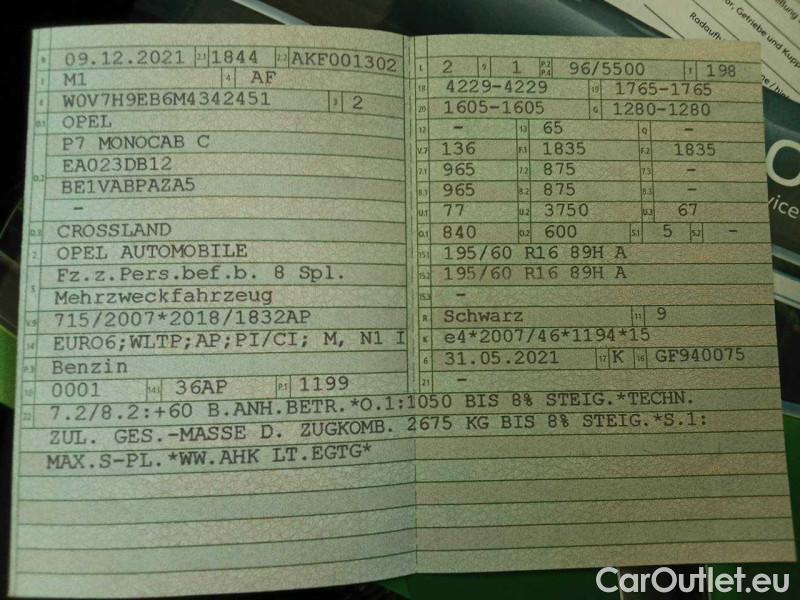 B 09.12.2021 2.1 1844 2.2 AKF001302
J M1 4 AF
E W0V7H9EB6M4342451 3 2
D.1 OPEL
D.2 P7 MONOCAB C
EA023DB12
BE1VABPAZA5
-
D.3 CROSSLAND
2 OPEL AUTOMOBILE
5 Fz.z.Pers.bef.b. 8 Spl.
Mehrzweckfahrzeug
V.9 715/2007*2018/1832AP
14 EURO6;WLTP;AP;PI/CI; M, N1 I
P.3 Benzin
10 0001 14.1 36AP P.1 1199
L 2 9 1 P.2 P.4 96/5500 T 198
18 4229-4229 19 1765-1765
20 1605-1605 G 1280-1280
12 - 13 65 Q -
V.7 136 F.1 1835 F.2 1835
7.1 965 7.2 875 7.3 -
8.1 965 8.2 875 8.3 -
U.1 77 U.2 3750 U.3 67
O.1 840 O.2 600 S.1 5 S.2 -
15.1 195/60 R16 89H A
15.2 195/60 R16 89H A
15.3 -
R Schwarz 11 9
K e4*2007/46*1194*15
6 31.05.2021 17 K 16 GF940075
21 -
22 7.2/8.2:+60 B.ANH.BETR.*O.1:1050 BIS 8% STEIG.*TECHN.
ZUL. GES.-MASSE D. ZUGKOMB. 2675 KG BIS 8% STEIG.*S.1:
MAX.S-PL.*WW.AHK LT.EGTG*
or, Getriebe und Kupp
CarOutlet.eu